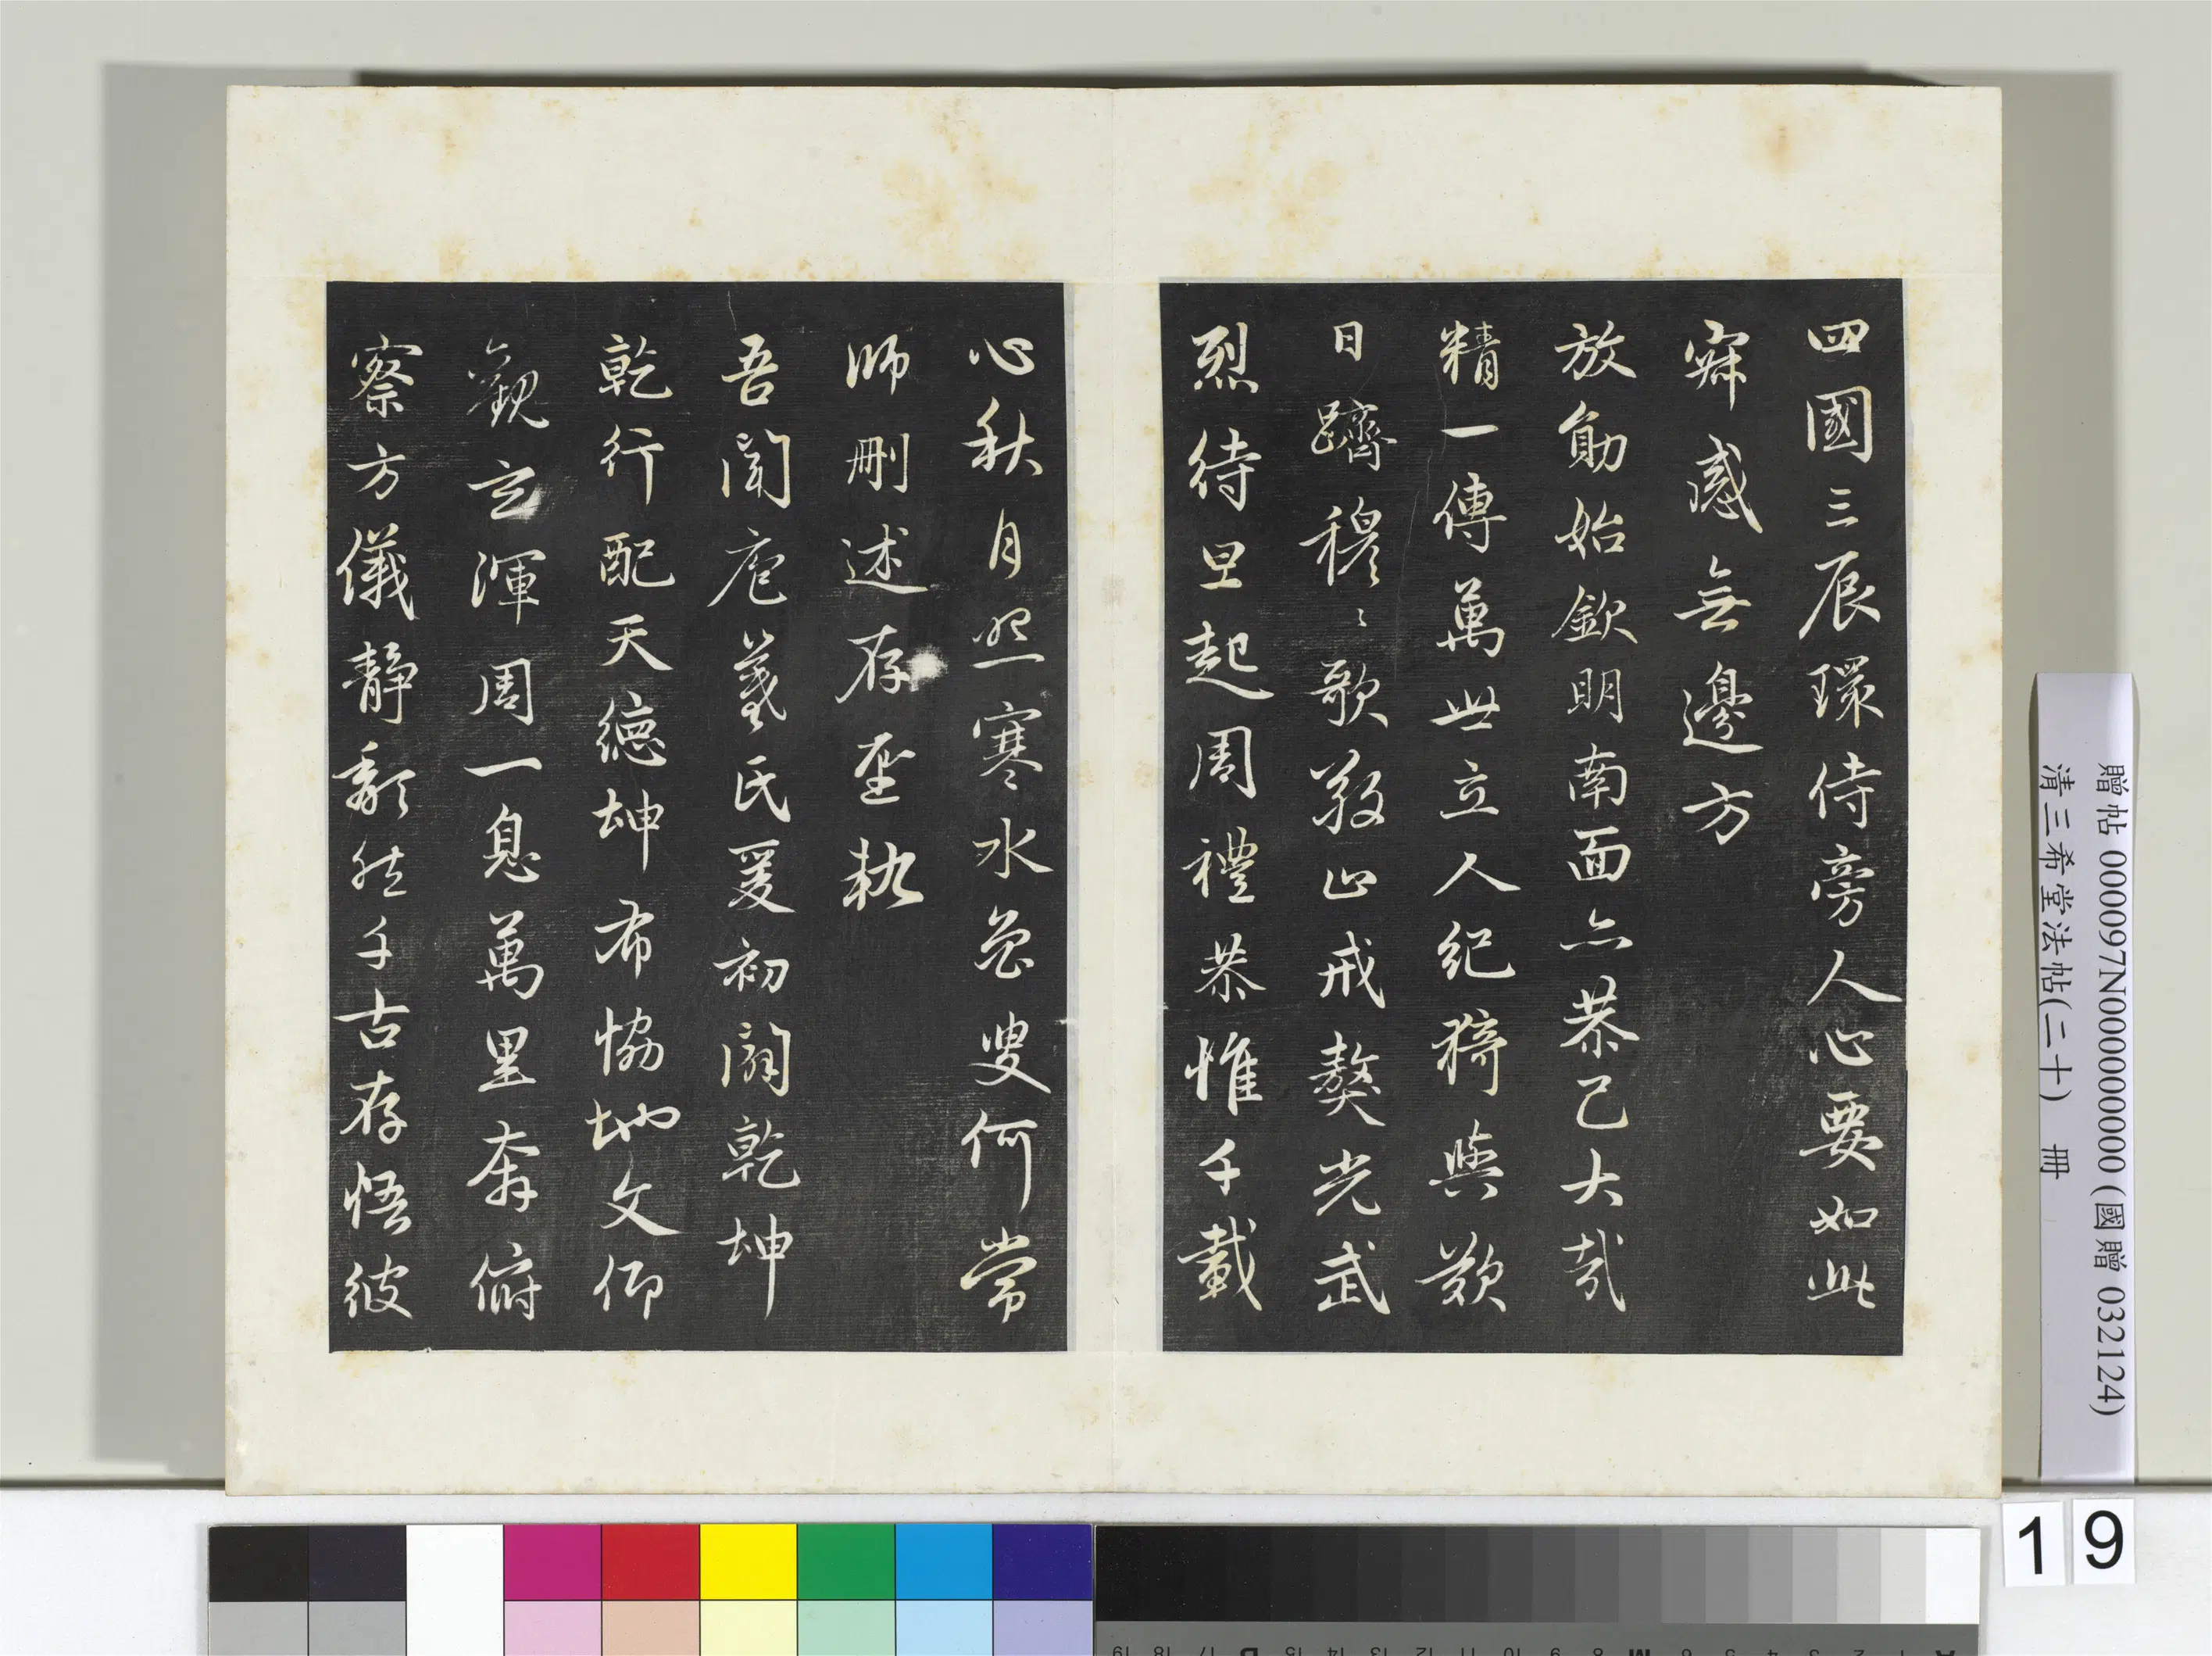 四國三辰環侍旁人心要如此
寂感無邊方
放勛始欽明南面亦恭己大哉
精一傳萬世立人紀猗與歎
日躋穆〻歌敬止戒獒光武
烈待旦起周禮恭惟千載
心秋月照寒水魯叟何常
師刪述存聖軌
吾聞庖羲氏爰初闢乾坤
乾行配天德坤布協地文仰
觀玄渾周一息萬里奔俯
察方儀靜頹然千古存悟彼
贈帖 000097N000000000 (國贈 032124)
清三希堂法帖(二十) 冊
19